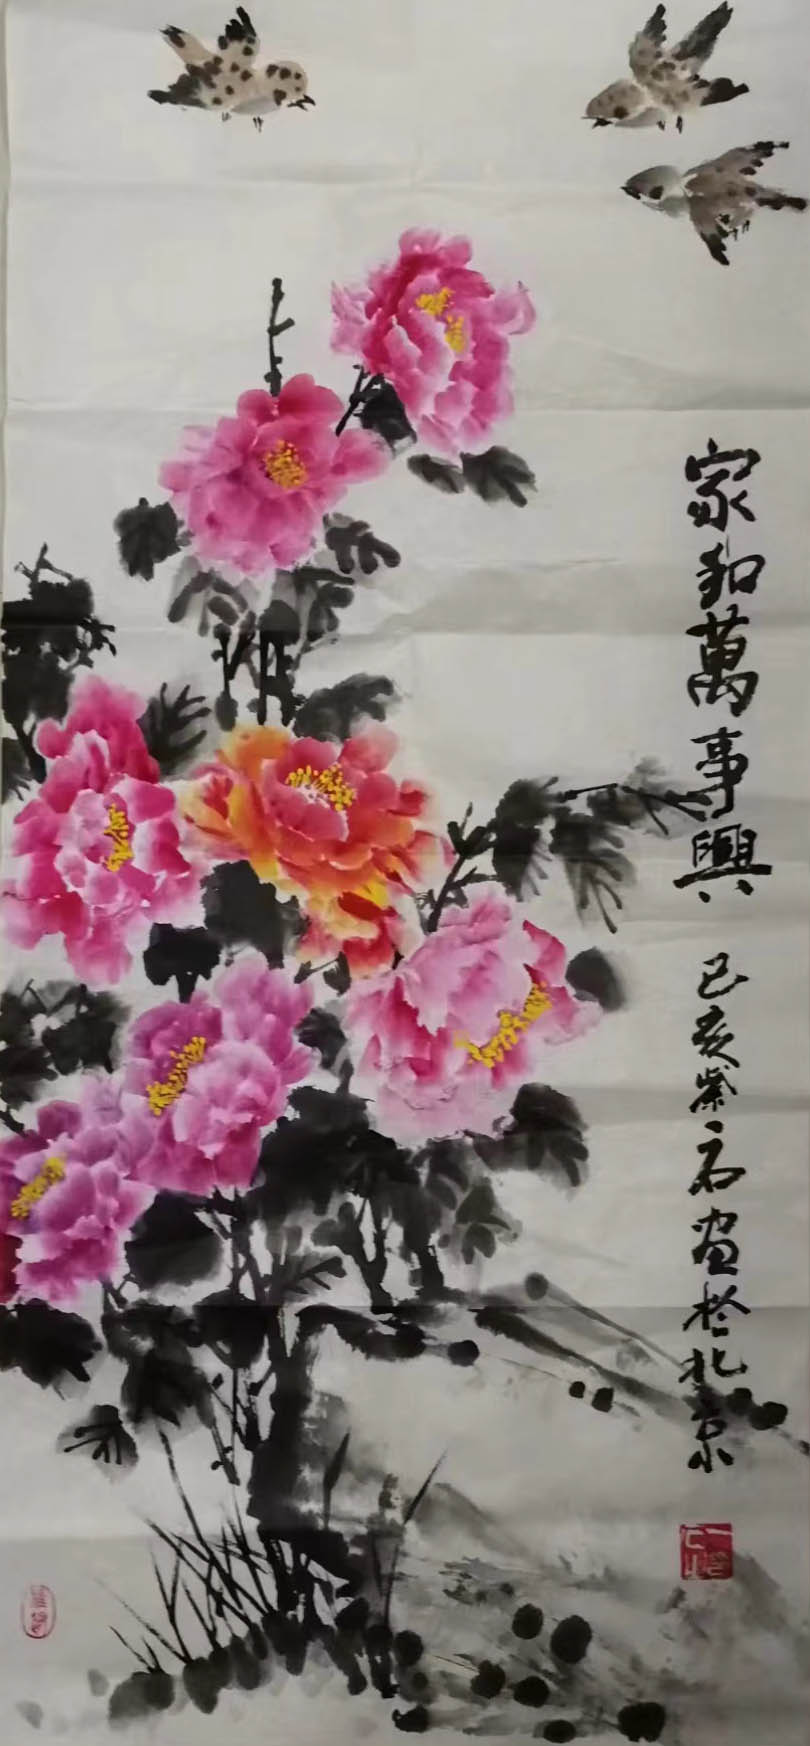 家和萬事興
己亥紫石画於北京